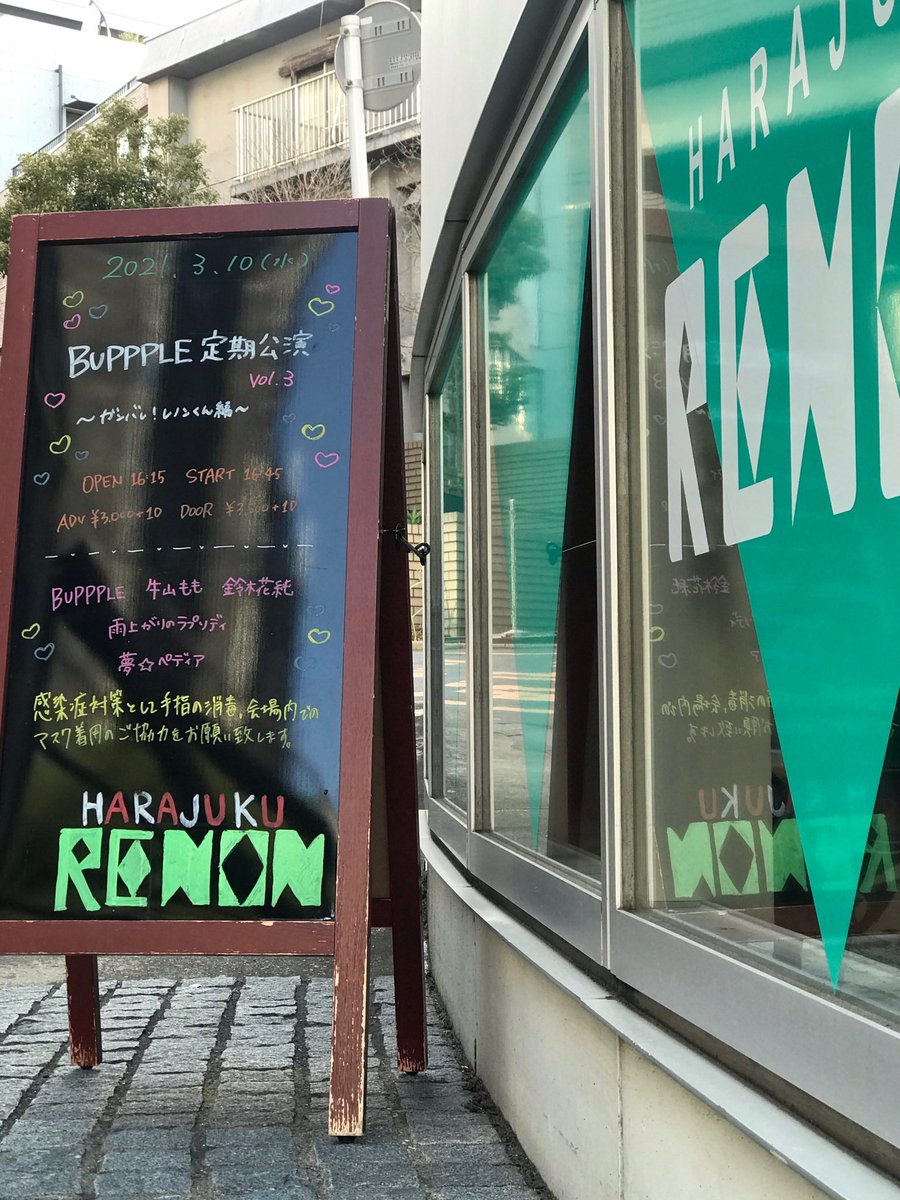 2021.3.10(水)
BUPPPLE 定期公演
vol.3
～ガンバレ!レノンくん編～
OPEN 16:15 START 16:45
ADV ¥3,000+1D DOOR ¥3,500+1D
BUPPPLE 牛山もも 鈴木花純
雨上がりのラプソディ
夢☆ペディア
感染症対策として手指の消毒,会場内での
マスク着用のご協力をお願い致します。
HARAJUKU
RENON
HARAJU
RENO